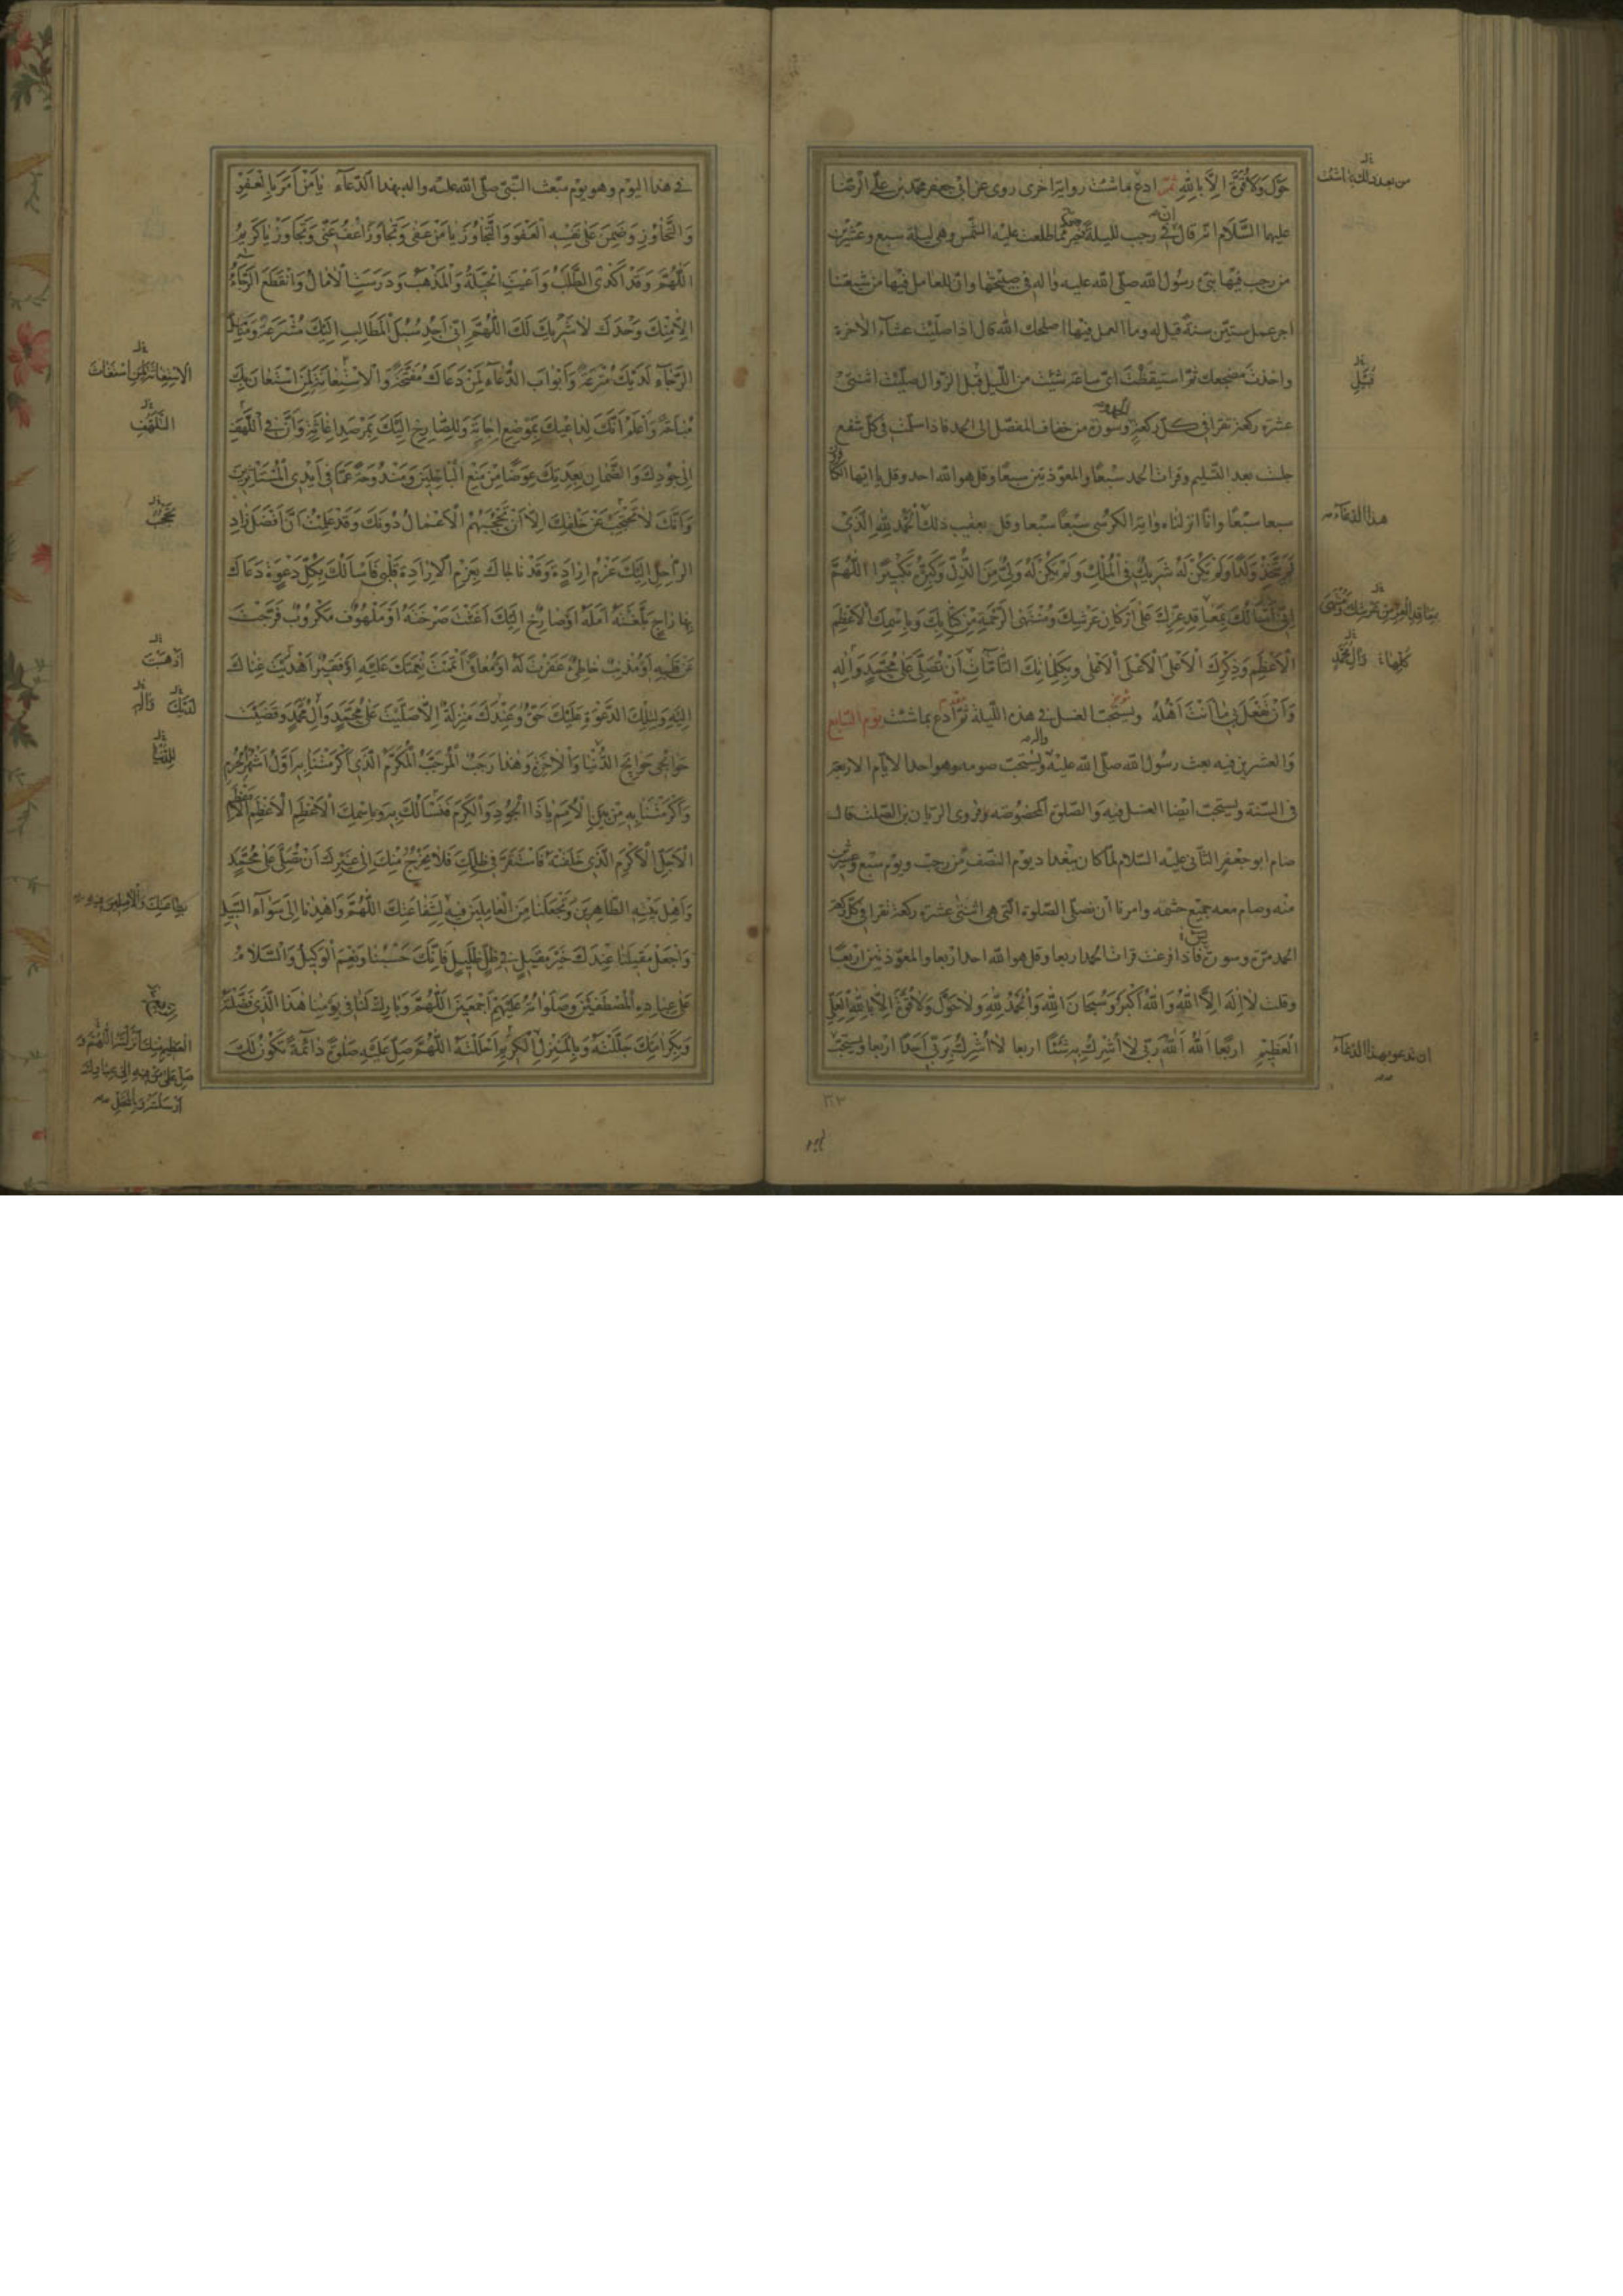 حَوْلَ وَلَا قُوَّةَ اِلَّا بِاللهِ ثمّ ادع ما شئت رواية اخرى روى عن ابى جعفر محمّد بن علىّ الرّضا
عليهما السّلام انّه قال انّ فى رجب لليلة خير ممّا طلعت عليه الشّمس وهى ليلة سبع وعشرين
من رجب فيها نبّئ رسول الله صلّى الله عليه واله فى صبيحتها وانّ للعامل فيها من شيعتنا
اجر عمل ستّين سنة قيل له وما العمل فيها اصلحك الله قال اذا صلّيت عشاء الاخرة
واخذت مضجعك ثمّ استيقظت اىّ ساعة شئت من اللّيل قبل الزّوال صلّيت اثنتى
عشرة ركعة تقرا فى كلّ ركعة الحمد وسورة من خفاف المفصّل الى الحمد فاذا سلّمت فى كلّ شفع
جلست بعد التّسليم وقرات الحمد سبعًا والمعوّذتين سبعًا وقل هو الله احد وقل يا ايّها الكافرون
سبعا سبعًا وانّا انزلناه واية الكرسى سبعًا سبعا وقل بعقب ذلك اَلْحَمْدُ لِلّٰهِ الَّذِى
لَمْ يَتَّخِذْ وَلَدًا وَلَمْ يَكُنْ لَهُ شَرِيكٌ فِى الْمُلْكِ وَلَمْ يَكُنْ لَهُ وَلِىٌّ مِنَ الذُّلِّ وَكَبِّرْهُ تَكْبِيرًا اَللّٰهُمَّ
اِنِّى اَسْاَلُكَ بِمَعَاقِدِ عِزِّكَ عَلَى اَرْكَانِ عَرْشِكَ وَمُنْتَهَى الرَّحْمَةِ مِنْ كِتَابِكَ وَبِاسْمِكَ الْاَعْظَمِ
الْاَعْظَمِ وَذِكْرِكَ الْاَعْلَى الْاَعْلَى الْاَعْلَى وَبِكَلِمَاتِكَ التَّامَّاتِ اَنْ تُصَلِّىَ عَلَى مُحَمَّدٍ وَاٰلِهِ
وَاَنْ تَفْعَلَ بِى مَا اَنْتَ اَهْلُهُ ويستحبّ الغسل فى هذه اللّيلة ثمّ ادع بما شئت يوم السّابع
والعشرين فيه بعث رسول الله صلّى الله عليه واله ويستحبّ صومه وهو احد الايّام الاربعة
فى السّنة ويستحبّ ايضا الغسل فيه والصّلوة المخصوصة وروى الريّان بن الصّلت قال
صام ابو جعفر الثّانى عليه السّلام لمّا كان ببغداد يوم النّصف من رجب ويوم سبع وعشرين
منه وصام معه جميع حشمه وامرنا ان نصلّى الصّلوة الّتى هى اثنتى عشرة ركعة تقرا فى كلّ ركعة
الحمد مرّة وسورة فاذا فرغت قرات الحمد اربعا وقل هو الله احد اربعا والمعوّذتين اربعًا
وقلت لَا اِلٰهَ اِلَّا اللهُ وَاللهُ اَكْبَرُ وَسُبْحَانَ اللهِ وَالْحَمْدُ لِلّٰهِ وَلَا حَوْلَ وَلَا قُوَّةَ اِلَّا بِاللهِ الْعَلِىِّ
الْعَظِيمِ اربعًا اَللهُ اَللهُ رَبِّى لَا اُشْرِكُ بِهِ شَيْئًا اربعا لَا اُشْرِكُ بِرَبِّى اَحَدًا اربعا ويستحبّ
هذا الدّعآء
قُبَيْلَ
ان تدعو بهذا الدّعآء
فى هذا اليوم وهو يوم مبعث النّبىّ صلّى الله عليه واله بهذا الدّعآء يَا مَنْ اَمَرَ بِالْعَفْوِ
وَالتَّجَاوُزِ وَضَمِنَ عَلَى نَفْسِهِ الْعَفْوَ وَالتَّجَاوُزَ يَا مَنْ عَفَى وَتَجَاوَزَ اعْفُ عَنِّى وَتَجَاوَزْ يَا كَرِيمُ
اَللّٰهُمَّ وَقَدْ اَكْدَى الطَّلَبُ وَاَعْيَتِ الْحِيلَةُ وَالْمَذْهَبُ وَدَرَسَتِ الْاٰمَالُ وَانْقَطَعَ الرَّجَاءُ
اِلَّا مِنْكَ وَحْدَكَ لَا شَرِيكَ لَكَ اَللّٰهُمَّ اِنِّى اَجِدُ سُبُلَ الْمَطَالِبِ اِلَيْكَ مُشْرَعَةً وَمَنَاهِلَ
الرَّجَاءِ لَدَيْكَ مُتْرَعَةً وَاَبْوَابَ الدُّعَاءِ لِمَنْ دَعَاكَ مُفَتَّحَةً وَالْاِسْتِعَانَةَ لِمَنِ اسْتَعَانَ بِكَ
مُبَاحَةً وَاَعْلَمُ اَنَّكَ لِدَاعِيكَ بِمَوْضِعِ اِجَابَةٍ وَلِلصَّارِخِ اِلَيْكَ بِمَرْصَدِ اِغَاثَةٍ وَاَنَّ فِى اللَّهْفِ
اِلَى جُودِكَ وَالضَّمَانِ بِعِدَتِكَ عِوَضًا مِنْ مَنْعِ الْبَاخِلِينَ وَمَنْدُوحَةً عَمَّا فِى اَيْدِى الْمُسْتَاْثِرِينَ
وَاَنَّكَ لَا تَحْتَجِبُ عَنْ خَلْقِكَ اِلَّا اَنْ تَحْجُبَهُمُ الْاَعْمَالُ دُونَكَ وَقَدْ عَلِمْتُ اَنَّ اَفْضَلَ زَادِ
الرَّاحِلِ اِلَيْكَ عَزْمُ اِرَادَةٍ وَقَدْ نَاجَاكَ بِعَزْمِ الْاِرَادَةِ قَلْبِى فَاَسْاَلُكَ بِكُلِّ دَعْوَةٍ دَعَاكَ
بِهَا رَاجٍ بَلَّغْتَهُ اَمَلَهُ اَوْ صَارِخٌ اِلَيْكَ اَغَثْتَ صَرْخَتَهُ اَوْ مَلْهُوفٌ مَكْرُوبٌ فَرَّجْتَ
عَنْ قَلْبِهِ اَوْ مُذْنِبٌ خَاطِئٌ غَفَرْتَ لَهُ اَوْ مُعَافًى اَتْمَمْتَ نِعْمَتَكَ عَلَيْهِ اَوْ فَقِيرٌ اَهْدَيْتَ غِنَاكَ
اِلَيْهِ وَلِتِلْكَ الدَّعْوَةِ عَلَيْكَ حَقٌّ وَعِنْدَكَ مَنْزِلَةٌ اِلَّا صَلَّيْتَ عَلَى مُحَمَّدٍ وَاٰلِ مُحَمَّدٍ وَقَضَيْتَ
حَوَائِجِى حَوَائِجَ الدُّنْيَا وَالْاٰخِرَةِ وَهٰذَا رَجَبٌ الْمُرَجَّبُ الْمُكَرَّمُ الَّذِى اَكْرَمْتَنَا بِهِ اَوَّلُ اَشْهُرِ الْحُرُمِ
وَاَكْرَمْتَنَا بِهِ مِنْ بَيْنِ الْاُمَمِ يَا ذَا الْجُودِ وَالْكَرَمِ فَنَسْاَلُكَ بِهِ وَبِاسْمِكَ الْاَعْظَمِ الْاَعْظَمِ الْاَعْظَمِ
الْاَجَلِّ الْاَكْرَمِ الَّذِى خَلَقْتَهُ فَاسْتَقَرَّ فِى ظِلِّكَ فَلَا يَخْرُجُ مِنْكَ اِلَى غَيْرِكَ اَنْ تُصَلِّىَ عَلَى مُحَمَّدٍ
وَاَهْلِ بَيْتِهِ الطَّاهِرِينَ وَتَجْعَلَنَا مِنَ الْعَامِلِينَ فِيهِ لِشَفَاعَتِكَ اَللّٰهُمَّ وَاهْدِنَا اِلَى سَوَاءِ السَّبِيلِ
وَاجْعَلْ مَقِيلَنَا عِنْدَكَ خَيْرَ مَقِيلٍ فِى ظِلٍّ ظَلِيلٍ فَاِنَّكَ حَسْبُنَا وَنِعْمَ الْوَكِيلُ وَالسَّلَامُ
عَلَى عِبَادِهِ الْمُصْطَفَيْنَ وَصَلَوَاتُهُ عَلَيْهِمْ اَجْمَعِينَ اَللّٰهُمَّ وَبَارِكْ لَنَا فِى يَوْمِنَا هٰذَا الَّذِى فَضَّلْتَهُ
وَبِكَرَامَتِكَ جَلَّلْتَهُ وَبِالْمَنْزِلِ الْكَرِيمِ اَحْلَلْتَهُ اَللّٰهُمَّ صَلِّ عَلَيْهِ صَلٰوةً دَائِمَةً تَكُونُ لَكَ